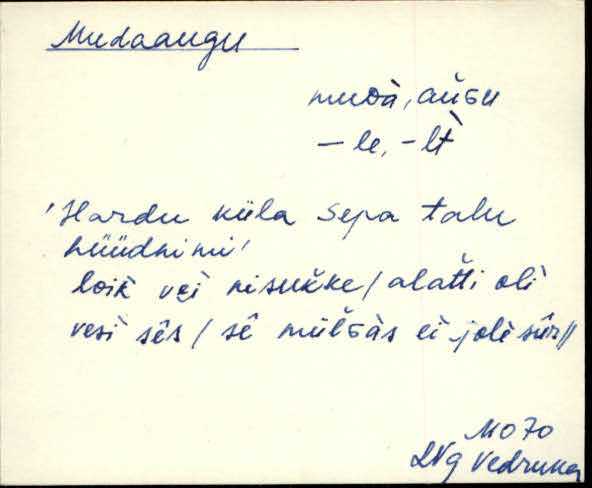 Mudaaugu
mudà, aūGu
– le, – lt̀
'Hardu küla Sepa talu
hüüdnimi'
loik vei nisukke / alatti oli
vesi sês / sê mülGàs ei jole sūr //
MO 70
LNg Vedruka